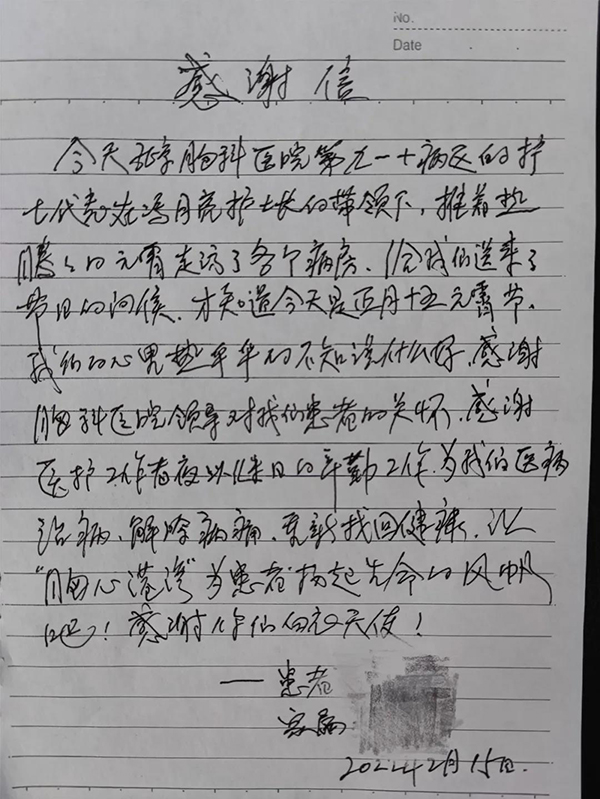 No.
Date
感谢信
今天北京胸科医院第九一十病区的护
士代表在冯月亮护士长的带领下，推着热
腾腾的元宵走访了各个病房、给我们送来了
节日的问候、才知道今天是正月十五元宵节、
我们的心里热乎乎的不知说什么好、感谢
胸科医院领导对我们患者的关怀、感谢
医护工作者夜以继日的辛勤工作、为我们医病
治病、解除病痛、重新找回健康、让
“胸心港湾”为患者扬起生命的风帆
吧！感谢你们白衣天使！
——患者
家属
2022年2月15日.